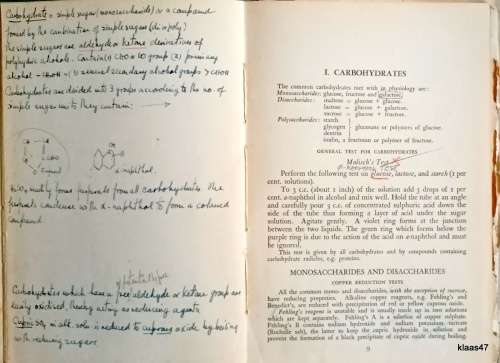 Carbohydrate = simple sugar (monosaccharide) or a compound
formed by the combination of simple sugars (di or poly)
The simple sugars are aldehyde or ketone derivatives of
polyhydric alcohols. Contain (1) CHO or CO group (2) primary
alcohol - CH₂OH (3) several secondary alcohol groups > CHOH
Carbohydrates are divided into 3 groups according to the no. of
simple sugar units they contain:
α-naphthol.
H₂SO₄ mostly forms furfurals from all carbohydrates. The
furfurals condense with α-naphthol to form a coloured
compound.
Carbohydrates which have a free aldehyde or ketone group are
easily oxidised, thereby acting as reducing agents.
Cupric so₄ in alk. soln is reduced to cuprous oxide by boiling
with reducing sugars.
I. CARBOHYDRATES
The common carbohydrates met with in physiology are:
Monosaccharides: glucose, fructose and galactose.
Disaccharides: maltose = glucose + glucose.
lactose = glucose + galactose.
sucrose = glucose + fructose.
Polysaccharides: starch
glycogen
dextrin
glucosans or polymers of glucose.
inulin, a fructosan or polymer of fructose.
GENERAL TEST FOR CARBOHYDRATES
Molisch's Test
Perform the following test on glucose, lactose, and starch (1 per
cent. solutions).
To 5 c.c. (about 1 inch) of the solution add 3 drops of 1 per
cent. α-naphthol in alcohol and mix well. Hold the tube at an angle
and carefully pour 5 c.c. of concentrated sulphuric acid down the
side of the tube thus forming a layer of acid under the sugar
solution. Agitate gently. A violet ring forms at the junction
between the two liquids. The green ring which forms below the
purple ring is due to the action of the acid on α-naphthol and must
be ignored.
This test is given by all carbohydrates and by compounds containing
carbohydrate radicles, e.g. proteins.
MONOSACCHARIDES AND DISACCHARIDES
COPPER REDUCTION TESTS
All the common mono- and disaccharides, with the exception of sucrose,
have reducing properties. Alkaline copper reagents, e.g. Fehling's and
Benedict's, are reduced with precipitation of red or yellow cuprous oxide.
Fehling's reagent is unstable and is usually made up in two solutions
which are kept separately. Fehling's A is a solution of copper sulphate.
Fehling's B contains sodium hydroxide and sodium potassium tartrate
(Rochelle salt), the latter to keep the cupric hydroxide in solution and
prevent the formation of a black precipitate of cupric oxide during boiling.
klaas47